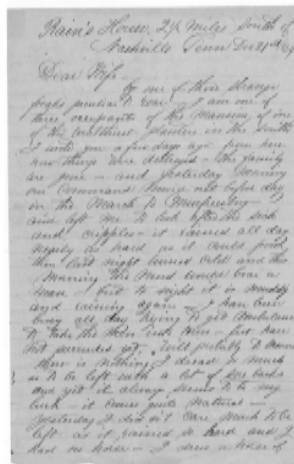 Rain's House, 2½ Miles South of
Nashville Tenn Dec 21st
Dear Wife
By one of those strange
freaks peculiar to War - I am one of
three occupants of the Mansion of one
of the wealthiest Planters in the South
I wrote you a few days ago from here
how things were destroyed - the family
are gone - and yesterday Morning
our Command moved out before day
on the March to Murfreesboro
and left me to look after the sick
and cripples - it rained all day
nearly as hard as it could pour
then last night turned Cold and this
Morning the Mud would bear a
man - but to night it is muddy
and raining again - I have been
busy all day trying to get Ambulances
to take the sick in - but have
not succeeded yet, Will probably to morrow
there is nothing I dread so much
as to be left with a lot of
and yet it always seems to be my
luck - it comes quite Natural -
Yesterday I did not care much to be
left as it rained so hard and I
had no horse - I drew a horse of